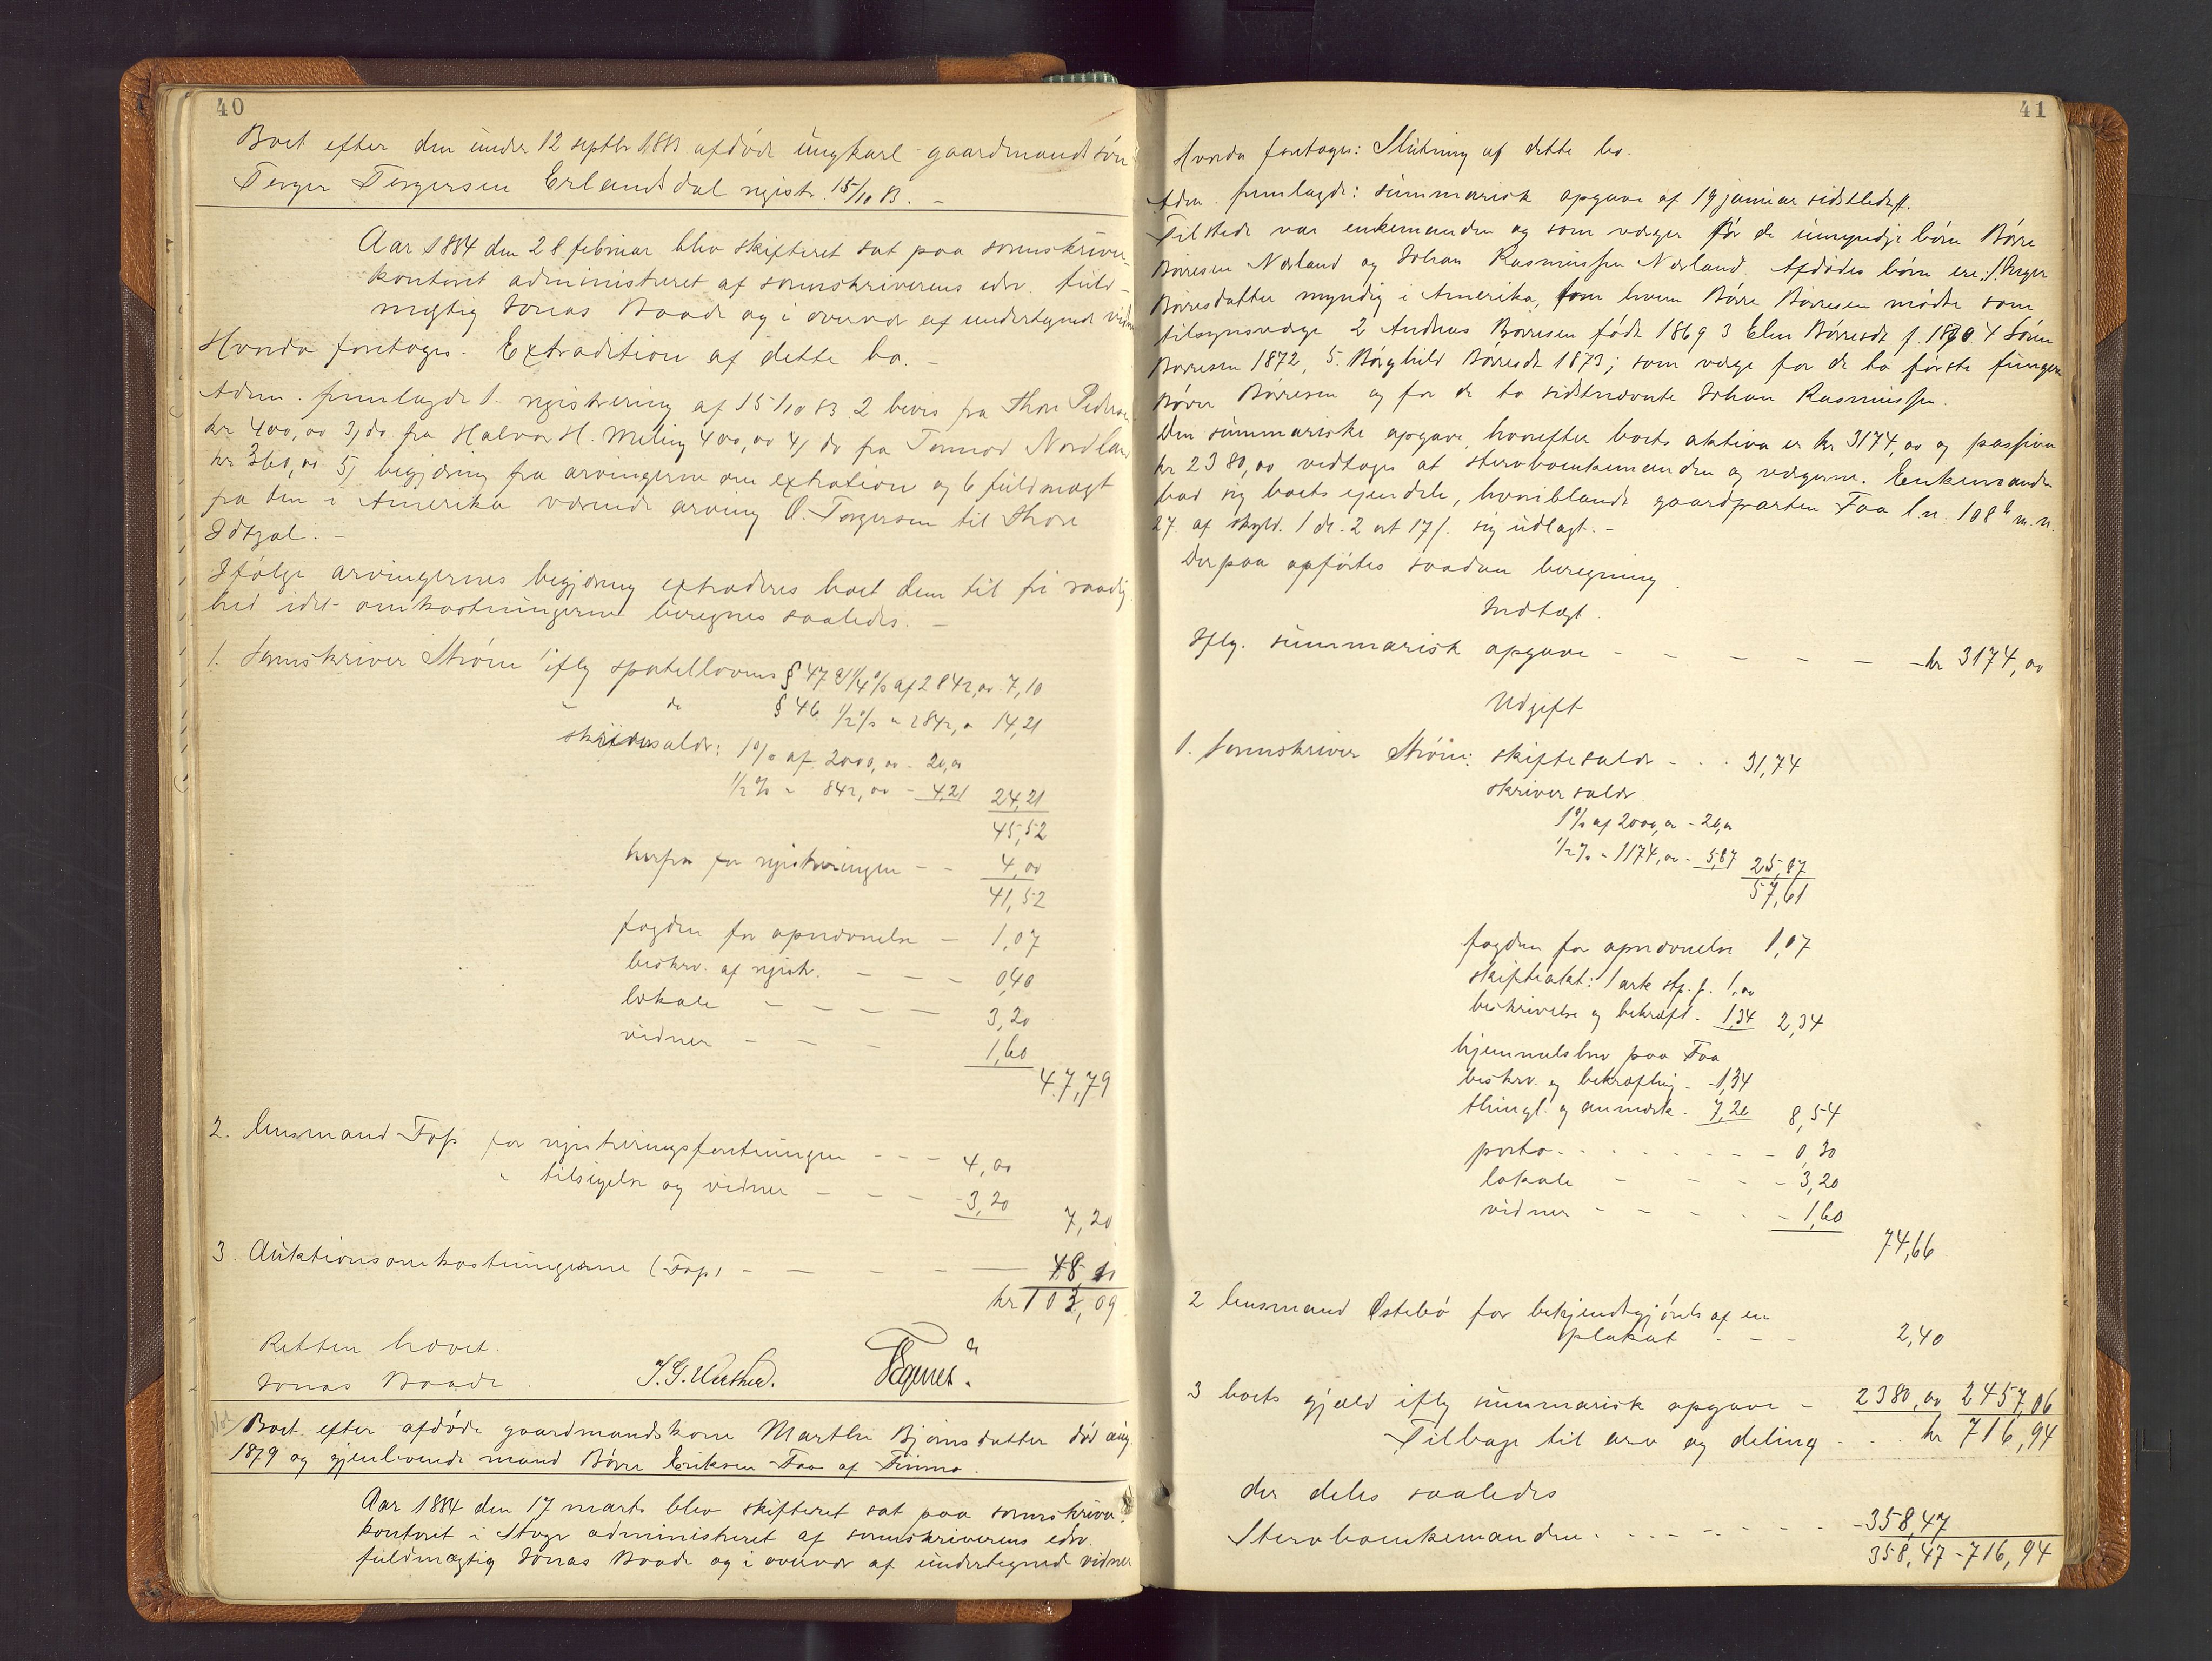 40
Boet efter den under 12 septbr 1883 afdøde ungkarl gaardmandssøn
Torger Torgersen Erlandsdal registr. 15/10 83. –
Aar 1884 den 28 februar blev skifteret sat paa sorenskriver-
kontoret administreret af sorenskriverens edsv. fuld-
mægtig Jonas Baade og i overvær af undertegnede vidner
Hvorda foretoges: Extradition af dette bo. –
Adm. fremlagde 1. registrering af 15/10 83 2 bevis fra Thore Pedersen
kr 400,00 3, do fra Halvor H. Meling 400,00 4, do fra Tormod Nordland
kr 360,00 5, begjæring fra arvingerne om extration og 6 fuldmagt
fra den i Amerika værende arving O. Torgersen til Thore
Idtzal. –
Ifølge arvingernes begjæring extraderes boet dem til fri raadig-
hed idet omkostningerne beregnes saaledes. –
1. Sorenskriver Strøm ifly sportellovens § 47 1/4 % af 2842,00 7,10
" do § 46 1/2 % " 2842,00 14,21
skriversalær: 1 % af 2000,00 – 20,00
1/2 % " 842,00 – 4,21 24,21
45,52
herfra for registreringen – – 4,00
41,52
fogden for opnævnelse – 1,07
beskrv. af registr. – – – 0,40
lokale – – – – 3,20
vidner – – – 1,60
47,79
2. lensmand Foss for registreringsforretningen – – – 4,00
" tilsigelse og vidner – – – 3,20
7,20
3. Auktionsomkostningerne (Foss) – – – – – 48,
kr 103,09
Retten hævet.
Jonas Baade
Boet efter afdøde gaardmandskone Marthe Bjørnsdatter død aug.
1879 og gjenlevende mand Børre Eriksen Faa af Finnø.
Aar 1884 den 17 marts blev skifteret sat paa sorenskriver-
kontoret i Stavgr administreret af sorenskriverens edsv.
fuldmægtig Jonas Baade og i overvær af undertegnede vidner
41
Hvorda foretoges: Slutning af dette bo.
Adm. fremlagde: summarisk opgave af 19 januar sidstleden.
Tilstede var enkemanden og som værger for de umyndige børn Børre
Børresen Nærland og Johan Rasmussen Nærland. Afdødes børn ere: 1 Inger
Børresdatter myndig i Amerika, for hvem Børre Børresen mødte som
tilsynsværge 2 Andreas Børresen født 1869 3 Elen Børresdt f. 1870 4 Søren
Børresen 1872, 5. Børghild Børresdt 1873; som værge for de to første fungerer
Børre Børresen og for de to sidstnævnte Johan Rasmussen.
Den summariske opgave, hvorefter boets aktiva er kr 3174,00 og passiva
kr 2380,00 vedtoges af stervboenkemanden og værgerne. Enkemanden
bad sig boets eiendele, hvoriblandt gaardparten Faa l.n. 108b m.n.
27 af skyld. 1 dr. 2 ort 17 s. sig udlagt. –
Derpaa opførtes saadan beregning
Indtægt.
Ifly. summarisk opgave – – – – – kr 3174,00
Udgift
1. Sorenskriver Strøm: skiftesalær – . . 31,74
skriversalær
1 % af 2000,00 – 20,00
1/2 % " 1174,00 – 5,87 25,87
57,61
fogden for opnævnelse 1,07
skifteakt: 1 ark stp. p. 1,00
beskrivelse og bekræft. – 1,34 2,34
hjemmelsbrev paa Faa
beskrv. og bekræftelig – 1,34
thingl. og anmærk. 7,20 8,54
porto . . . . . . – – 0,30
lokale – – – – 3,20
vidner – – – – 1,60
74,66
2 lensmand Østebø for bekjendtgjørelse af en
plakat – – – 2,40
3 boets gjæld ifly summarisk opgave – 2380,00 2457,06
Tilbage til arv og deling – . . kr 716,94
der deles saaledes
Stervboenkemanden . . – – – – – 358,47
358,47 – 716,94